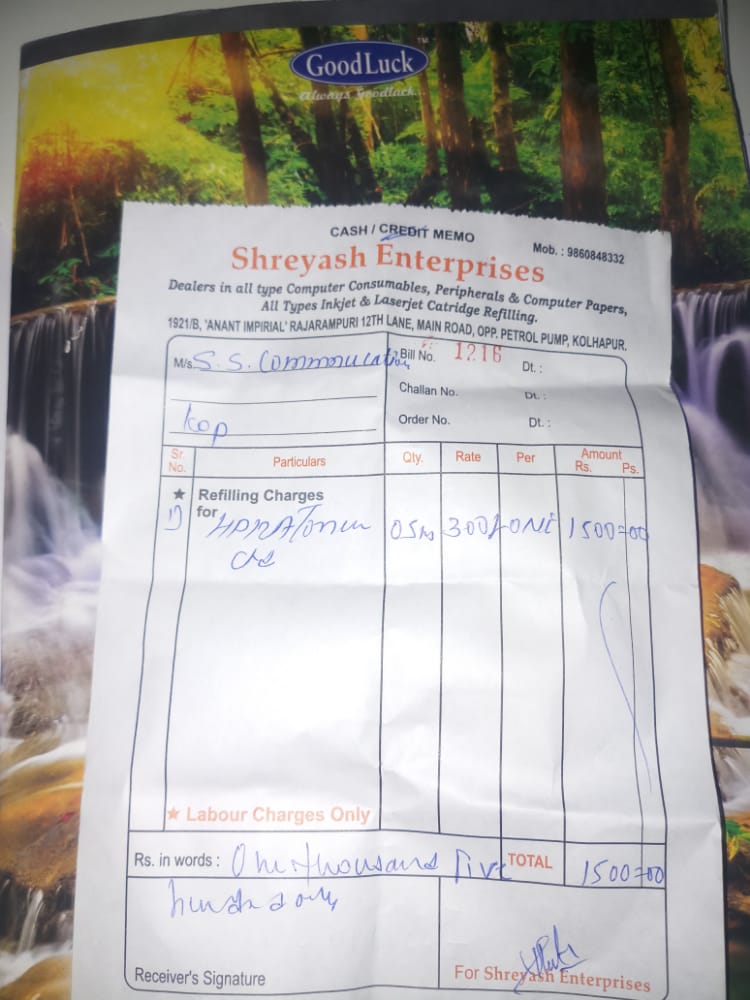 GoodLuck TM
Always Goodluck...
CASH / CREDIT MEMO
Mob. : 9860848332
Shreyash Enterprises
Dealers in all type Computer Consumables, Peripherals & Computer Papers,
All Types Inkjet & Laserjet Catridge Refilling.
1921/B, 'ANANT IMPIRIAL' RAJARAMPURI 12TH LANE, MAIN ROAD, OPP. PETROL PUMP, KOLHAPUR.
M/s S. S. Communication
Bill No. 1216 Dt. :
Challan No. Dt. :
Kop
Order No. Dt. :
Sr. No. Particulars Qty. Rate Per Amount Rs. Ps.
★ Refilling Charges
1) for Toner 05 300/- ONE 1500=00
★ Labour Charges Only
Rs. in words : One thousand Five TOTAL 1500=00
only
Receiver's Signature
For Shreyash Enterprises